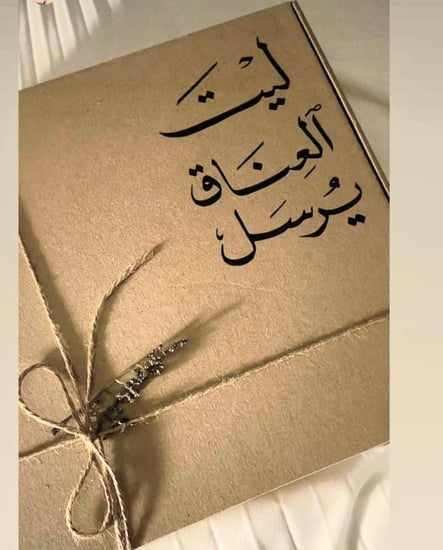 ليت
ٱلعِنَاق
يُرسَل